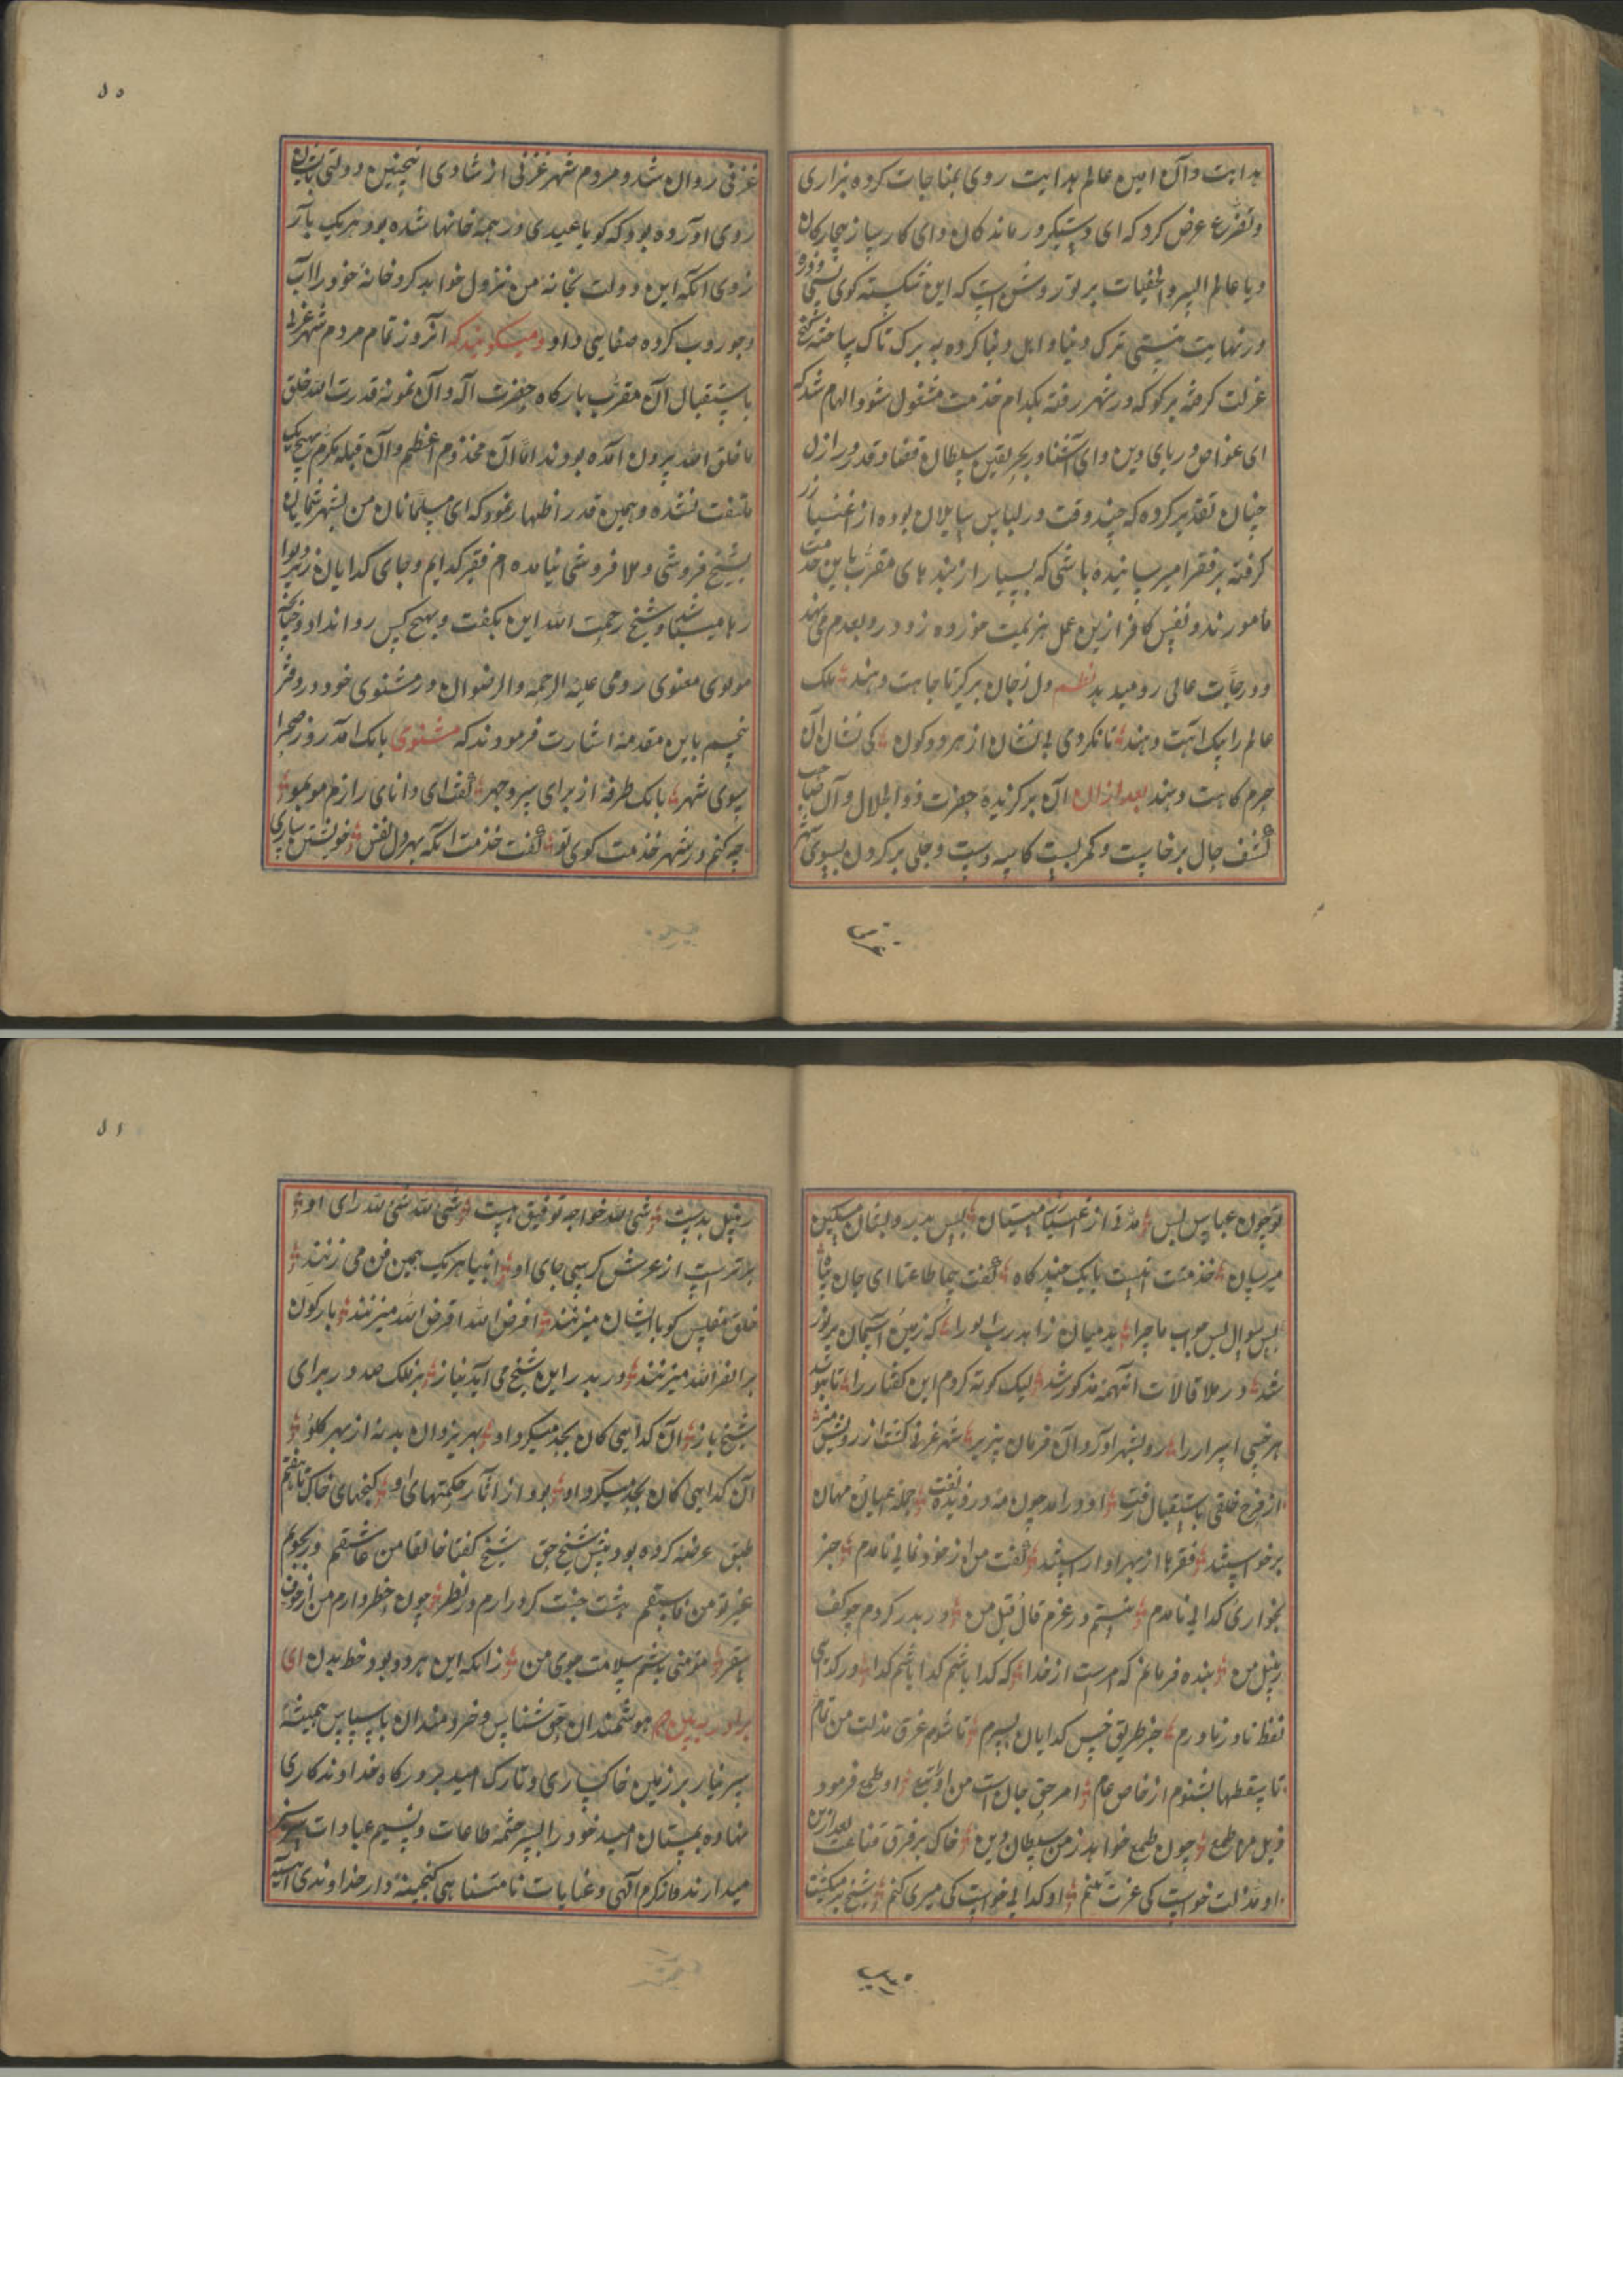 هدایت و آن امین عالم بدایت روی بمناجات کرده بزاری
وتضرع عرض کرد که ای دستگیر درماندگان و ای کارساز بیچارکان
ویا عالم السر والخفیات بر تو روشن است که این شکسته کوی نیستی
در نهایت نیستی ترک دنیا و اهل دنیا کرده به برک تاک ساخته
عزلت کرفته برکو که در شهر رفته بکدام خدمت مشغول شود الهام شد که
ای غواص دریای دین و ای آشناور بحر یقین سلطان قضا و قدر در ازل
چنان تقدیر کرده که چند وقت در لباس سایلان بوده از اغنیا زر
کرفته بر فقرا میرسانیده باشی که بسیار از بندهای مقرب باین خدمت
مأمورند و نفس کافر ازین عمل هزیمت خورده زود رو بعدم می نهد
و درجات عالی رو میدهد نظم دل ز جان برکیر تا جاهت دهند ملک
عالم را بیک آهت دهند تا نکردی بی نشان از هر دو کون کی نشان آن
حرم کاهت دهند بعد از ان آن برکزیدهٔ حضرت ذوالجلال و آن صاحب
کشف حال برخاست و کمر بست کاسه بدست و جلی بر کردن بسوی شهر
غزنی
۵۰
غزنی روان شد و مردم شهر غزنی از شادی اینچنین دولتی که بایشان
روی آورده بود که کویا عیدی در همه خانها شده بود هر یک بآرزوی
روی آنکه این دولت بخانه من نزول خواهد کرد خانهٔ خود را آب
وجوروب کرده صفایی داد ومیکویند که آنروز تمام مردم شهر غزنی
باستقبال آن مقرب بارکاه حضرت اله و آن نمونهٔ قدرت الله خلق
ما خلق الله بیرون آمده بودند امّا آن مخذوم اعظم و آن قبله مکرم بهیچ یک
ملتفت نشده و همین قدر اظهار نمود که ای مسلمانان من بشهر شمایان
بشیخ فروشی و ملا فروشی نیامده ام فقیر کدایم و جای کدایان زیر دیوارها
میباشد و شیخ رحمت الله این بکفت و بهیچ کس رو نداد و چنانچه
مولوی معنوی رومی علیه الرحمه والرضوان در مثنوی خود در دفتر
پنجم باین مقدمه اشارت فرمودند که مثنوی بانک آمد رو ز صحرا
سوی شهر بانک طرفه از برای سر و جهر کفت ای دانای رازم مو بمو
چه کنم در شهر خذمت کوی تو کفت خذمت آنکه بهر ذل نفس خویشتن سازی
تو چون عباس دبس مدتی از اغنیا میستان پس بدرویشان مسکین
میرسان خذمتت اینست با یک چند کاه کفت سمعا طاعتا ای جان پناه
بس سوال بس جواب ماجرا بد میان زاهد رب الورا که زمین آسمان پر نور
شد در مقالات آنهمه مذکور شد لیک کوته کردم این کفتار را تا ننوشد
هر خسی اسرار را رو بشهر آورد آن فرمان پذیر شهر غزنی کشت از رویش منیر
از فرح خلقی باستقبال رفت او درآمد چون مه دزدیده تفت جمله اعیان مهان
برخواستند قصرها از بهر او آراستند کفت من از خود نمایی نامدم جز
بخواری کدایی نامدم نیستم در عزم قال و قیل من در بدر کردم چو کف
زنبیل من بنده فرمانم که امرست از خدا که کدا باشم کدا باشم کدا در کدایی
لفظ نادر ناورم جز طریق خس کدایان نسپرم تا شوم غرق مذلت من تمام
تا سقطها بشنوم از خاص عام امر حق جان است من او را تبع او طمع فرمود
ذل من طمع چون طمع خواهد ز من سلطان دین خاک بر فرق قناعت بعد ازین
او مذلت خواست کی عزت تنم او کدایی خواست کی میری کنم شیخ بر میکشت
۵۱
زنبیل بدست شی لله خواجه توفیق هست شی لله شی لله رای او
برتر است از عرش کرسی جای او انبیا هر یک همین فن می زنند
خلق مفلس کو با ایشان میزنند اقرض الله اقرض الله میزنند بازکون
بر انصر الله میزنند در بدر این شیخ می آرد نیاز بر فلک صد در برای
شیخ باز آن کدایی کان بجد میکرد او بهر یزدان بد نه از بهر کلو
آن کدایی کان بجد میکرد او بود از آثار حکمتهای او کنجهای خاک تا هفتم
طبق عرضه کرده بود پیش شیخ حق شیخ کفتا خالقا من عاشقم ور بجویم
غیر تو من فاسقم هشت جنت کر در آرم در نظر چون خطر دارم من از خوف
سقر مؤمنی باشم سلامت جوی من زانکه این هر دو بود خط بدن ای
هوشمندان حق شناس و خردمندان باسپاس همیشه
سر نیاز بر زمین خاکساری و تارک امید بر درکاه خداوندکاری
نهاده بستان امید خود را بسرچشمه طاعات و نسیم عبادات سرسبز
میدارند و از کرم الهی و عنایات نامتناهی کنجینه دار خداوندی